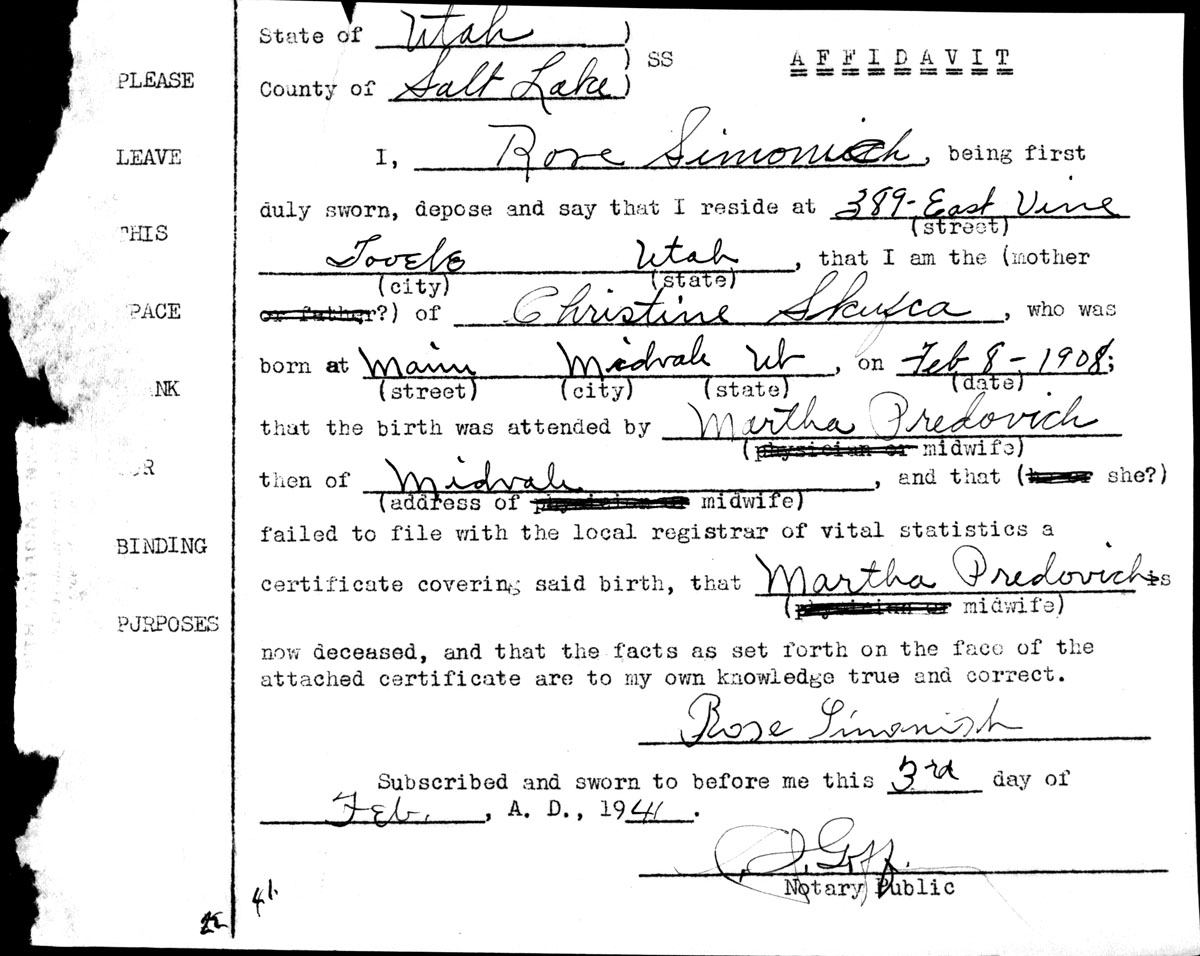 State of Utah )
) SS AFFIDAVIT
County of Salt Lake )
PLEASE
I, Rose Simonich, being first
LEAVE
duly sworn, depose and say that I reside at 389-East Vine
(street)
THIS
Tooele Utah, that I am the (mother
(city) (state)
or father?) of Christine Skufca, who was
PACE
born at Main Midvale Ut, on Feb 8-1908;
(street) (city) (state) (date)
NK
that the birth was attended by Martha Predovich
(physician or midwife)
then of Midvale, and that (he or she?)
OR
(address of physician or midwife)
failed to file with the local registrar of vital statistics a
BINDING
certificate covering said birth, that Martha Predovich is
(physician or midwife)
PURPOSES
now deceased, and that the facts as set forth on the face of the
attached certificate are to my own knowledge true and correct.
Rose Simonish
Subscribed and sworn to before me this 3rd day of
Feb., A. D., 1941.
Goff.
Notary Public
41.